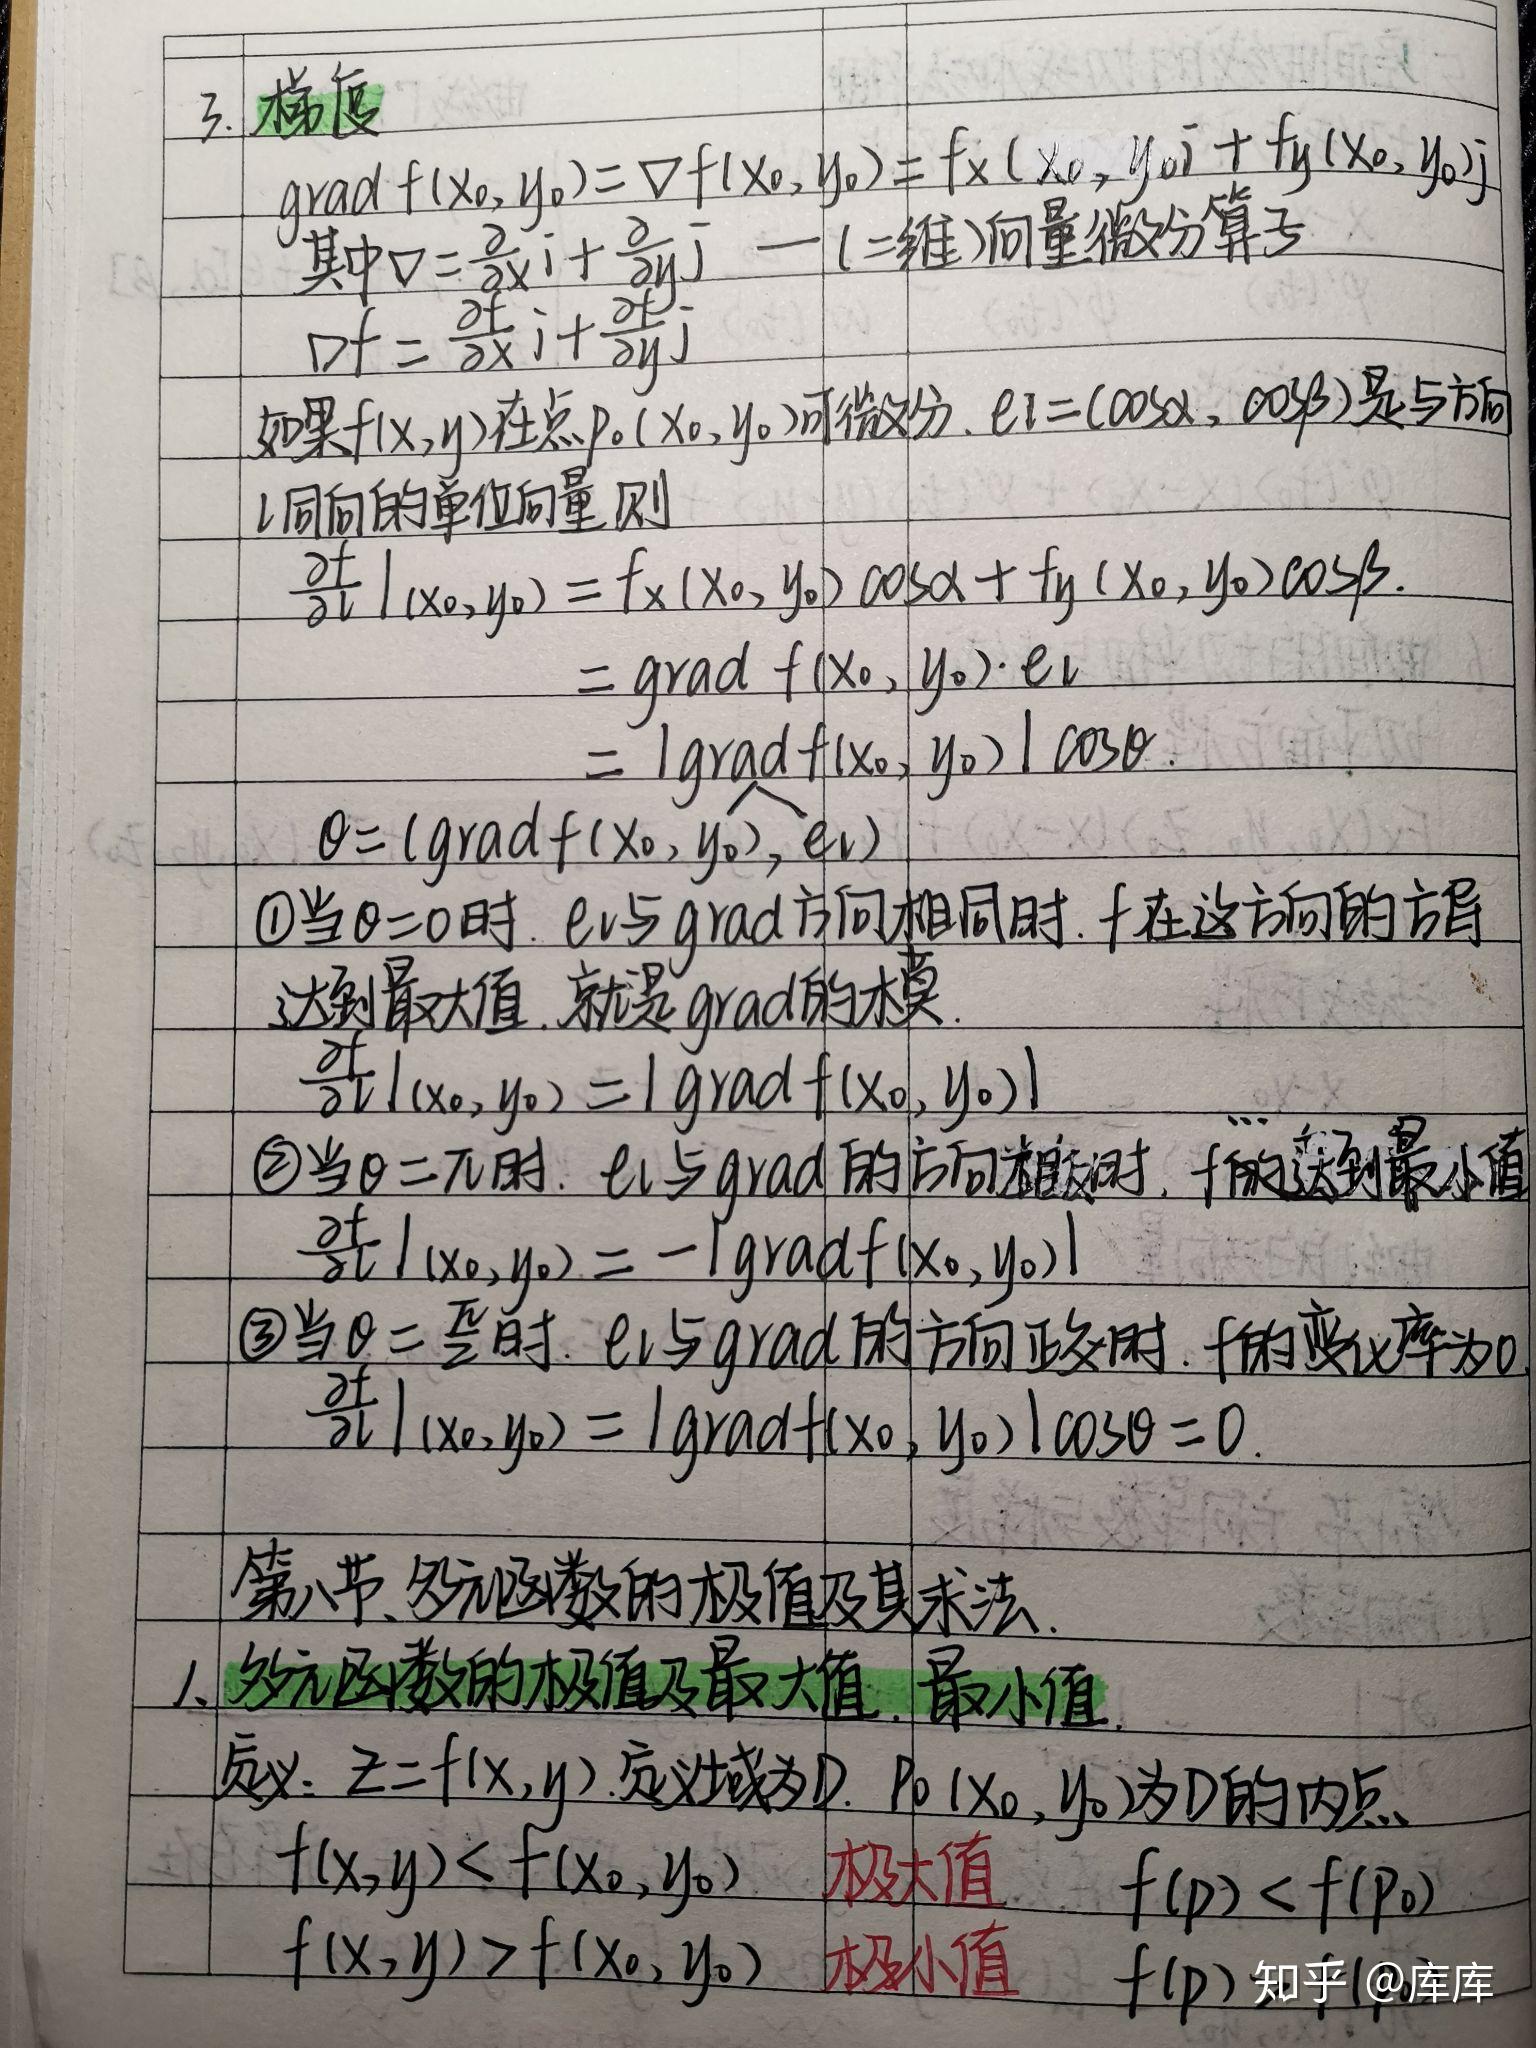 3. 梯度
grad f(x₀, y₀) = ∇f(x₀, y₀) = fx(x₀, y₀)i + fy(x₀, y₀)j
其中∇ = ∂/∂x i + ∂/∂y j — (二维)向量微分算子
∇f = ∂f/∂x i + ∂f/∂y j
如果f(x,y)在点P₀(x₀, y₀)可微分. el = (cosα, cosβ)是与方向
l同向的单位向量则
∂f/∂l |(x₀,y₀) = fx(x₀, y₀)cosα + fy(x₀, y₀)cosβ.
= grad f(x₀, y₀)·el
= |grad f(x₀, y₀)|cosθ.
θ = (grad f(x₀, y₀)^, el)
①当θ=0时. el与grad方向相同时. f在这方向的方导
达到最大值. 就是grad的模.
∂f/∂l |(x₀,y₀) = |grad f(x₀, y₀)|
②当θ=π时. el与grad的方向相反时. f的…达到最小值
∂f/∂l |(x₀,y₀) = -|grad f(x₀, y₀)|
③当θ=π/2时. el与grad的方向正交时. f的变化率为0.
∂f/∂l |(x₀,y₀) = |grad f(x₀, y₀)|cosθ = 0.
第八节、多元函数的极值及其求法.
1、多元函数的极值及最大值、最小值.
定义: z=f(x,y) 定义域为D. P₀(x₀, y₀)为D的内点、
f(x,y) < f(x₀, y₀) 极大值 f(p) < f(p₀)
f(x,y) > f(x₀, y₀) 极小值 f(p) > f(p₀)
知乎 @库库